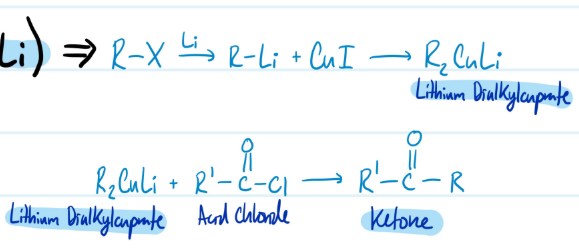 Li) ⇒ R-X Li→ R-Li + CuI → R₂CuLi
Lithium Dialkylcuprate
O
R₂CuLi + R'-C-Cl → R'-C-R
Lithium Dialkylcuprate Acid Chloride Ketone